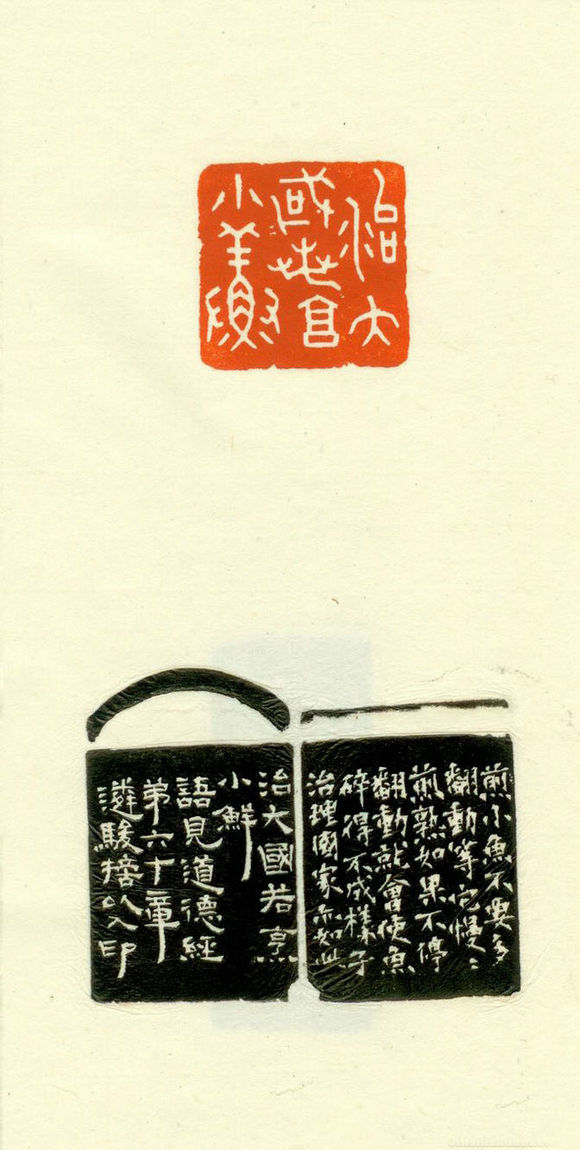 治大
國若亯
小鮮
煎小魚不要多
翻動等它慢〻
煎熟如果不停
翻動就會使魚
碎得不成樣子
治理國家亦如此
治大國若烹
小鮮
語見道德經
第六十章
駿以入印